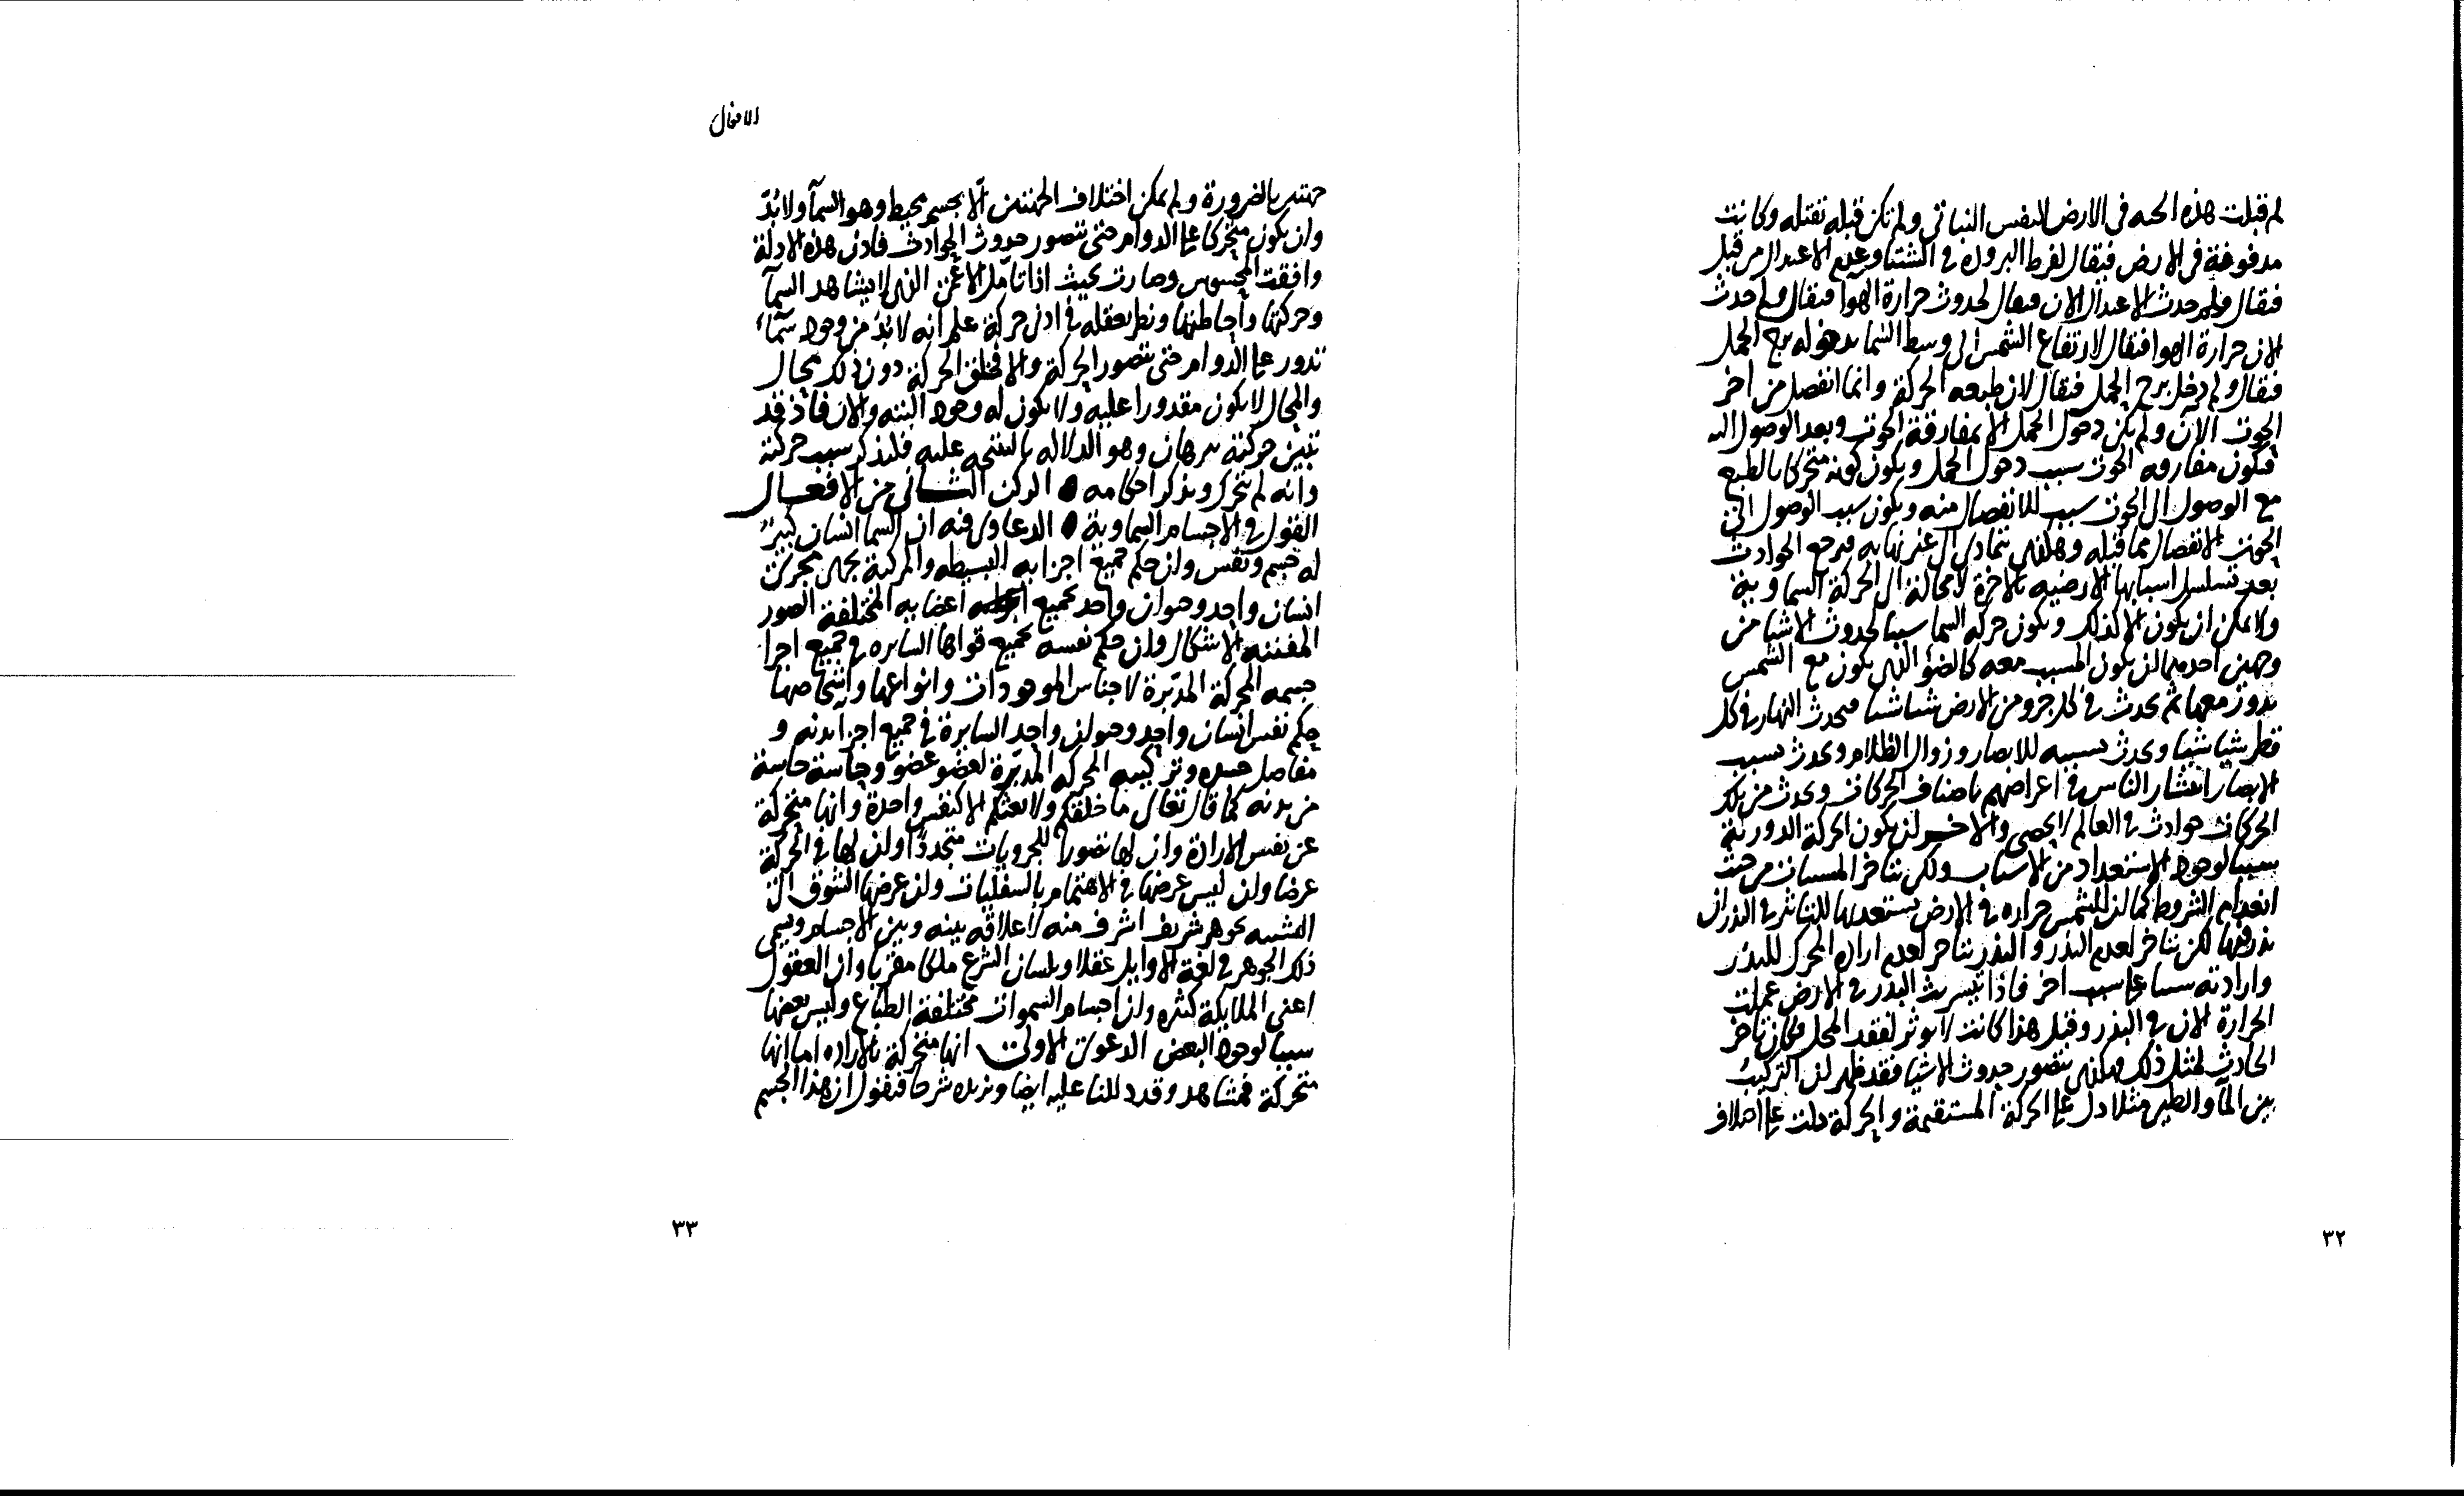 لم قبلت هذه الحبه فى الارض النفس النباتى ولم تكن قبله تقبله وكانت
مدفونة فى الارض فيقال لفرط البرودة فى الشتا وعدم الاعتدال من قبل
فيقال ولم حدث الاعتدال الان فيقال لحدوث حرارة الهوا فيقال ولم حدث
الان حرارة الهوا فيقال لارتفاع الشمس الى وسط السما بدخوله برج الحمل
فيقال ولم دخل برج الحمل فيقال لان طبعه الحركة وانما انفصل من اخر
الحوت الآن ولم يكن دخول الحمل الا بمفارقة الحوت وبعد الوصول اليه
فيكون مفارقه الحوت سبب دخول الحمل ويكون كونه متحركا بالطبع
مع الوصول الى الحوت سبب للانفصال منه ويكون سبب الوصول الى
الحوت الانفصال مما قبله وهكذى يتمادى الى غير نهايه فيرجع الحوادث
بعد تسلسل اسبابها الارضيه بالاخرة لا محالة الى الحركة السماوية
ولا يمكن ان يكون الا كذلك ويكون حركه السما سببا لحدوث الاشيا من
وجهين احدهما ان يكون المسبب معه كالضوء الذى يكون مع الشمس
يدور معها ثم يحدث فى كل جزو من الارض شيا شيا فيحدث النهار فى كل
قطر شيا شيا ويحدث بسببه للابصار وزوال الظلام ويحدث بسبب
الابصار انتشار الناس فى اغراضهم باصناف الحركات ويحدث من تلك
الحركات حوادث فى العالم لا يحصى والاخر ان يكون الحركة الدورية
سببا لوجود الاستعداد من الاسباب ولكن يتاخر المسببات من حيث
انعدام الشروط كما ان للشمس حراره فى الارض يستعد بها للتاثر فى البذر ان
بذر فيها لكن يتاخر لعدم البذر والبذر يتاخر لعدم اراده المحرك للبذر
وارادته سببا على سبب اخر فاذا تيسر بث البذر فى الارض عملت
الحرارة الان فى البذر وقبل هذا كانت لا توثر لفقد المحل فكان تاخر
الحادث لمثل ذلك وهكذى يتصور حدوث الاشيا فقد ظهر ان التركيب
بين المآ والطين مثلا دل على الحركة المستقيمة والحركة دلت على اختلاف
٣٢
الافعال
جهتين بالضرورة ولم يمكن اختلاف الجهتين الّا بجسم محيط وهو السمآ ولا بُدّ
وان يكون متحركا على الدوام حتى يتصور حدوث الحوادث فاذن هذه الادلة
وافقت المحسوس وصارت بحيث اذا تامّل الاعمى الذى لا يشاهد السمآ
وحركتها واحاطتها ونظر بعقله فى ادنى حركة علم انه لا بُدّ من وجود سمآء
تدور على الدوام حتى يتصور الحركة والا فخلق الحركة دون ذلك محال
والمحال لا يكون مقدورا عليه ولا يكون له وجود البته والان فاذ قد
تبين حركته ببرهان وهو الدلاله بالنتيجه عليه فلنذكر سبب حركته
وانه لم تحرك ونذكر احكامه الركن الثانى من الافعال
القول فى الاجسام السماوية الدعاوى فيه ان السما انسان كبير
له جسم ونفس وان حكم جميع اجزايه البسيطه والمركبة يجرى مجرى
انسان واحد وحيوان واحد بجميع اعضايه المختلفة الصور
المفننه الاشكال وان حكم نفسه بجميع قواها الساريه فى جميع اجزا
جسمه المحركة المدبّرة لاجناس الموجودات وانواعها واشخاصها
حكم نفس انسان واحد وحيوان واحد السارية فى جميع اجزا بدنه و
مفاصل جسده وتركيبه المحركه المدبّرة لعضو عضو وحاسة حاسة
من بدنه كما قال تعالى ما خلقكم ولا بعثكم الا كنفس واحدة وانها متحركة
عن نفس الارادة وان لها تصورا للجزويات متجددًا وان لها فى الحركة
غرضا وان ليس غرضها فى الاهتمام بالسفليات وان غرضها الشوق الى
التشبه بجوهر شريف اشرف منه لا علاقه بينه وبين الاجسام ويسمى
ذلك الجوهر فى لغة الاوايل عقلا وبلسان الشرع ملكا مقرّبا وان العقول
اعنى الملايكة كثيره وان اجسام السموات مختلفة الطباع وليس بعضها
سببا لوجود البعض الدعوى الاولى انها متحركة بالاراده اما انها
متحركة فمشاهد وقد دللنا عليه ايضا ونزيده شرحا فنقول ان هذا الجسم
٣٣